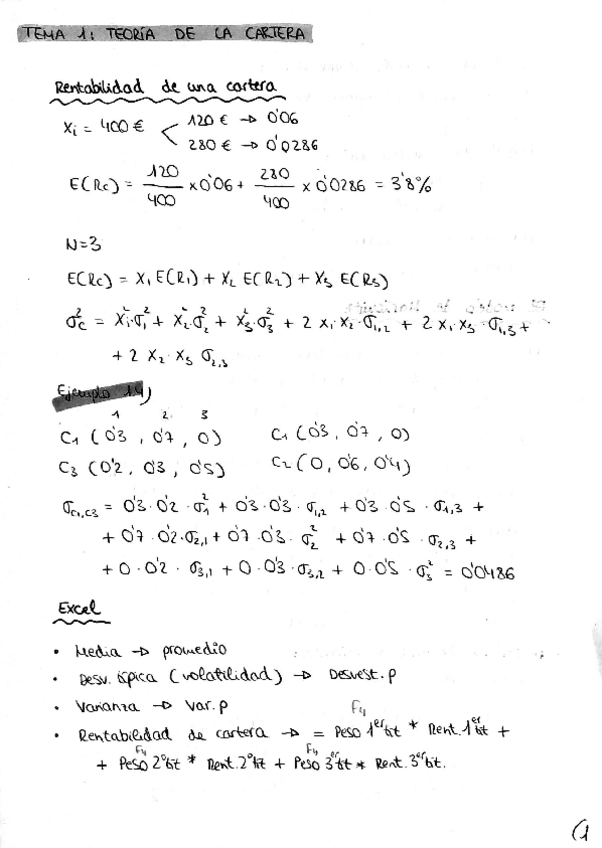 TEMA 1: TEORÍA DE LA CARTERA
Rentabilidad de una cartera
Xi = 400 € < 120 € → 0'06
280 € → 0'0286
E(Rc) = 120/400 × 0'06 + 280/400 × 0'0286 = 3'8%
N=3
E(Rc) = X₁ E(R₁) + X₂ E(R₂) + X₃ E(R₃)
σ²c = X₁²·σ₁² + X₂²·σ₂² + X₃²·σ₃² + 2 X₁·X₂·σ₁,₂ + 2 X₁·X₃·σ₁,₃ +
+ 2 X₂·X₃ σ₂,₃
Ejemplo 1.4)
1 2 3
C₁ (0'3, 0'7, 0) C₁ (0'3, 0'7, 0)
C₃ (0'2, 0'3, 0'5) C₂ (0, 0'6, 0'4)
σc₁,c₃ = 0'3·0'2·σ₁² + 0'3·0'3·σ₁,₂ + 0'3·0'5·σ₁,₃ +
+ 0'7·0'2·σ₂,₁ + 0'7·0'3·σ₂² + 0'7·0'5·σ₂,₃ +
+ 0·0'2·σ₃,₁ + 0·0'3·σ₃,₂ + 0·0'5·σ₃² = 0'0486
Excel
• Media → promedio
• Desv. típica (volatilidad) → Desvest.p
• Varianza → Var.p
F4
• Rentabilidad de cartera → = Peso 1er tít * Rent. 1er tít +
F4 F4
+ Peso 2º tít * Rent. 2º tít + Peso 3er tít * Rent. 3er tít.
(1